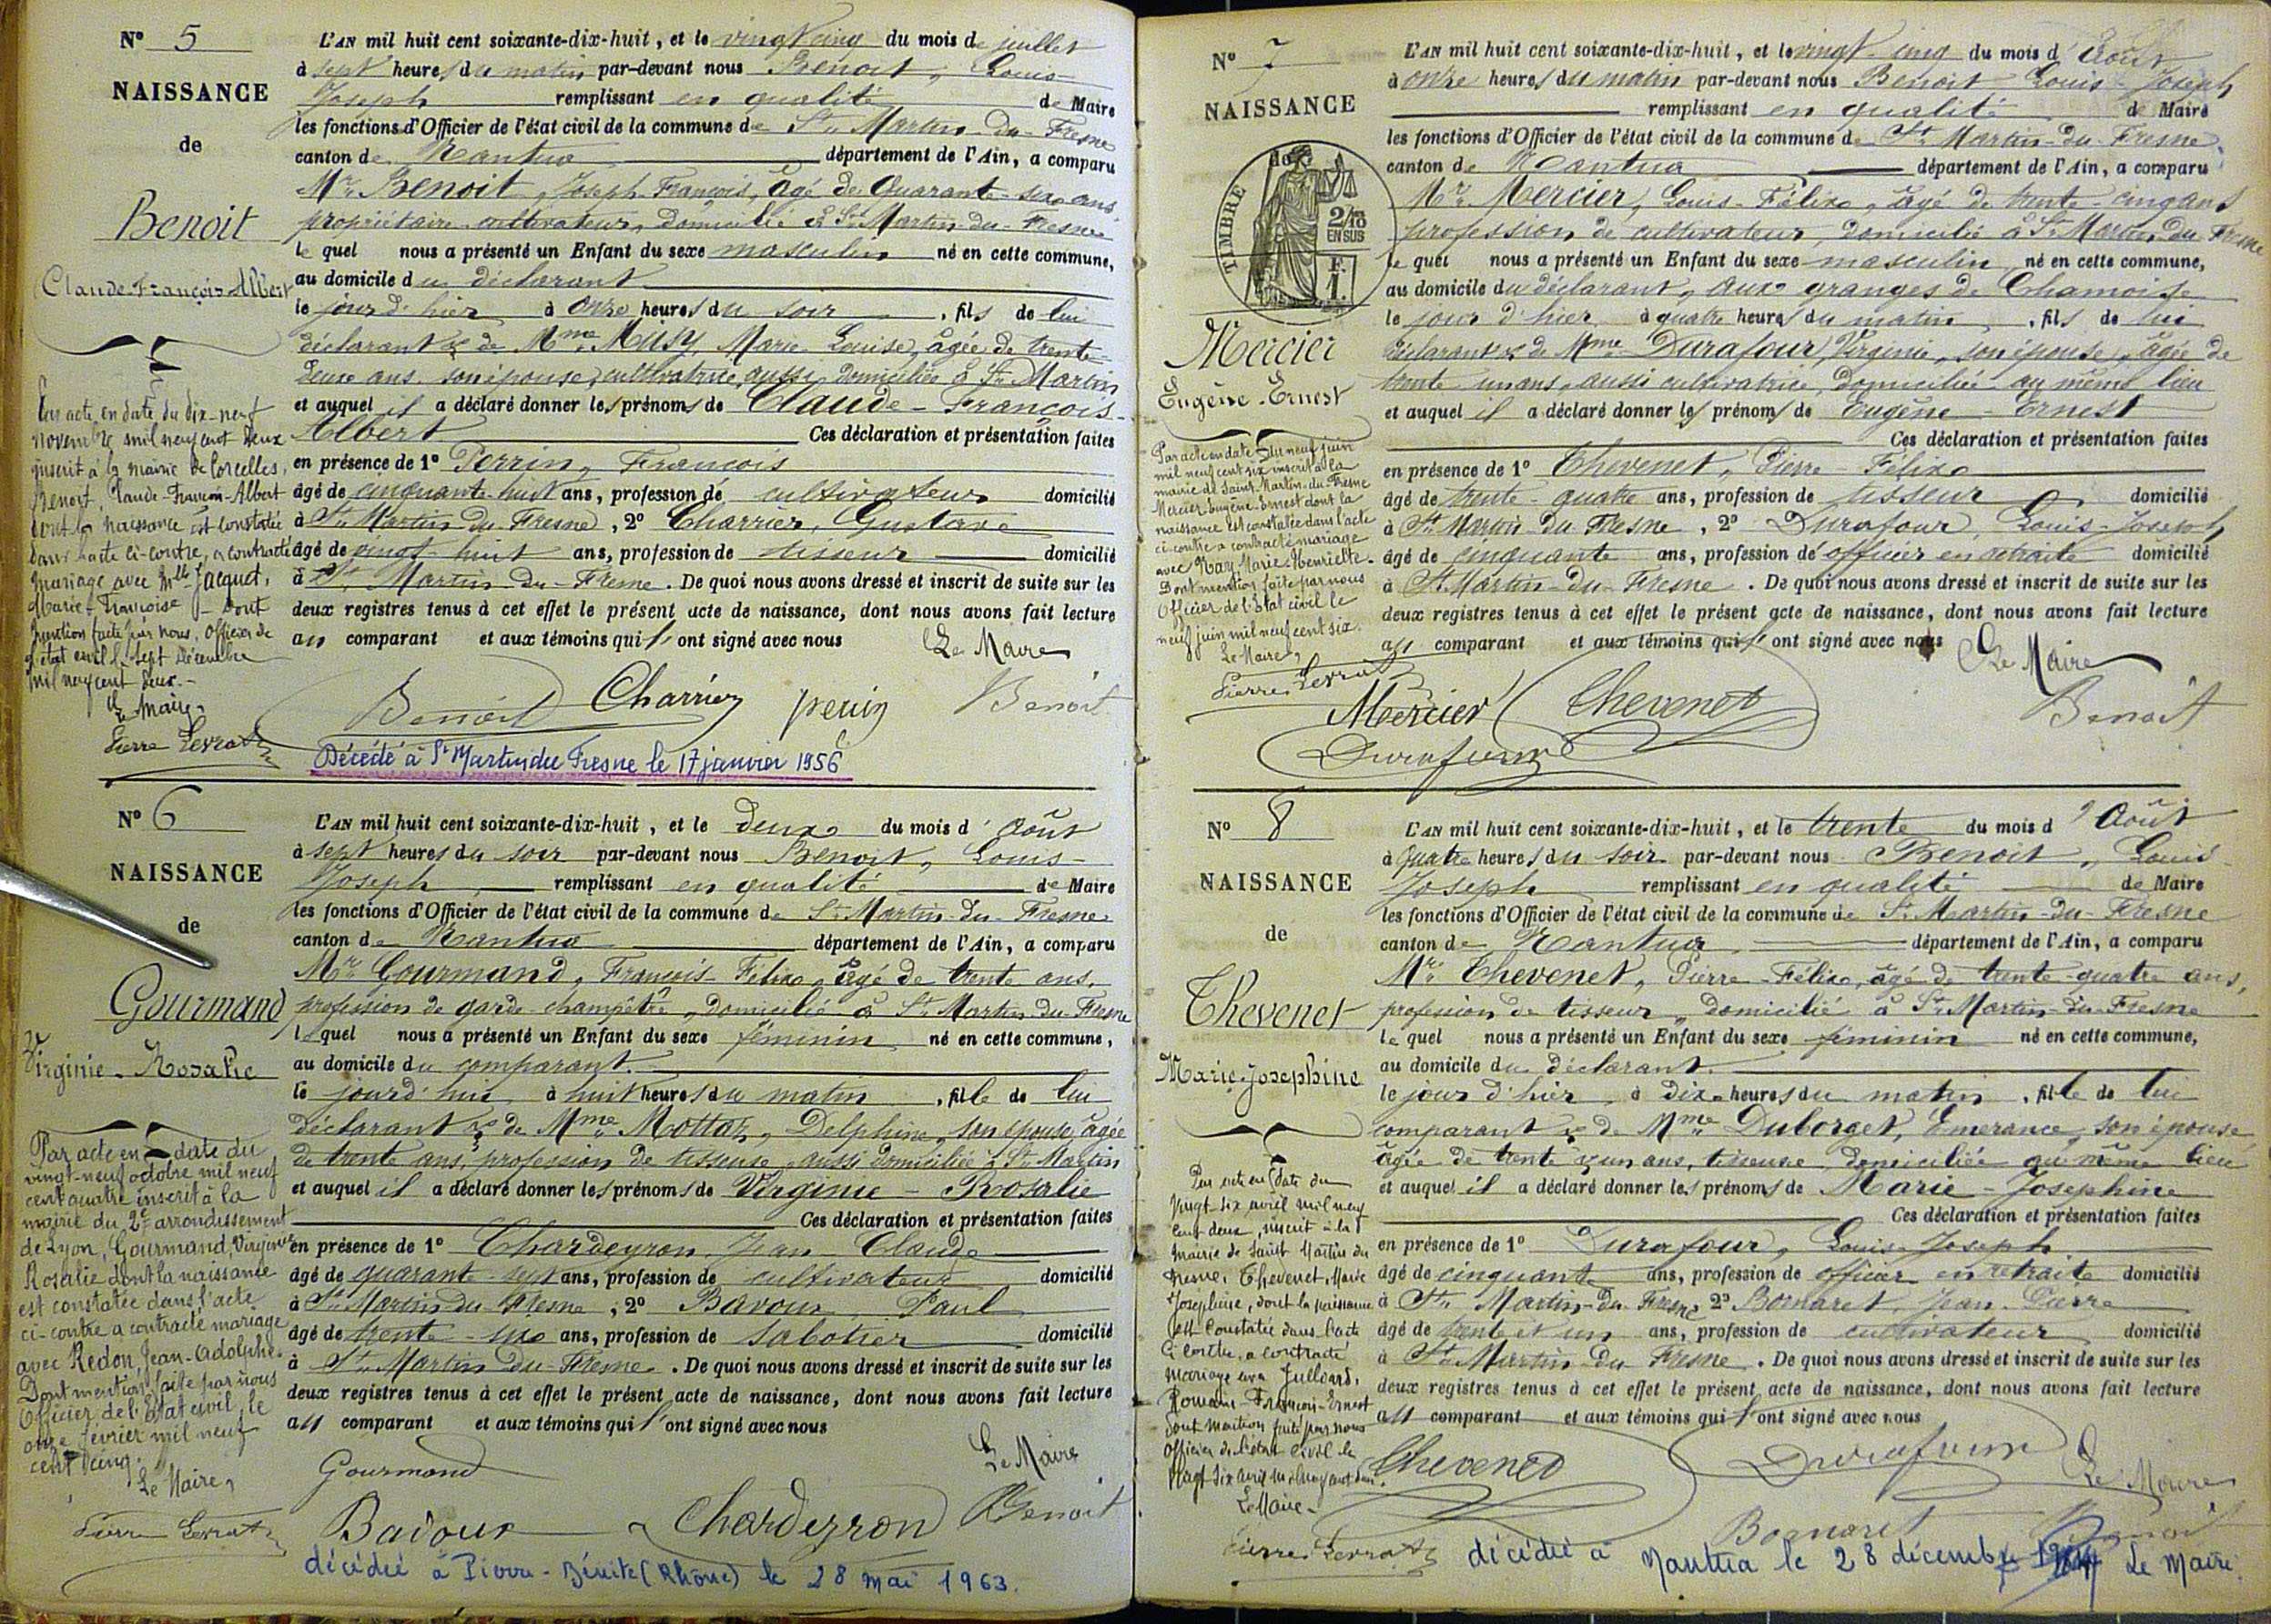 N° 5
NAISSANCE
de
Benoit
Claude-François-Albert
Par acte en date du dix-neuf
novembre mil neuf cent deux
inscrit à la mairie de Corcelles,
Benoit, Claude-François-Albert
dont la naissance est constatée
dans l'acte ci-contre, a contracté
mariage avec Mlle Jacquet,
Marie-Françoise - Dont
mention faite par nous, Officier de
l'état civil le sept décembre
mil neuf cent deux.-
Le Maire,
Pierre Levrat
L'AN mil huit cent soixante-dix-huit, et le vingt cinq du mois de juillet
à sept heures du matin par-devant nous Benoit, Louis-
Joseph remplissant en qualité de Maire
les fonctions d'Officier de l'état civil de la commune de St Martin-du-Fresne
canton de Nantua département de l'Ain, a comparu
Mr Benoit, Joseph-François, âgé de Quarante-six ans
propriétaire-cultivateur, domicilié à St Martin-du-Fresne
lequel nous a présenté un Enfant du sexe masculin né en cette commune,
au domicile du déclarant
le jour d'hier à onze heures du soir, fils de lui
déclarant & de Mme Musy, Marie Louise, âgée de trente-
deux ans, son épouse, cultivatrice, aussi domiciliée à St Martin
et auquel il a déclaré donner les prénoms de Claude-François-
Albert Ces déclaration et présentation faites
en présence de 1° Perrin, François
âgé de cinquante-huit ans, profession de cultivateur domicilié
à St Martin-du-Fresne, 2° Charrier, Gustave
âgé de vingt-huit ans, profession de tisseur domicilié
à St Martin-du-Fresne. De quoi nous avons dressé et inscrit de suite sur les
deux registres tenus à cet effet le présent acte de naissance, dont nous avons fait lecture
au comparant et aux témoins qui l'ont signé avec nous
Le Maire
Benoit Charrier perrin Benoit
Décédé à St Martin du Fresne le 17 janvier 1956
N° 6
NAISSANCE
de
Gourmand
Virginie-Rosalie
Par acte en date du
vingt-neuf octobre mil neuf
cent quatre inscrit à la
mairie du 2e arrondissement
de Lyon, Gourmand, Virginie
Rosalie dont la naissance
est constatée dans l'acte
ci-contre a contracté mariage
avec Redon, Jean-Adolphe.
Dont mention faite par nous
Officier de l'Etat civil, le
onze février mil neuf
cent cinq.
Le Maire,
Pierre Levrat
L'AN mil huit cent soixante-dix-huit, et le deux du mois d'Août
à sept heures du soir par-devant nous Benoit, Louis-
Joseph remplissant en qualité de Maire
les fonctions d'Officier de l'état civil de la commune de St Martin-du-Fresne
canton de Nantua département de l'Ain, a comparu
Mr Gourmand, François-Félix, âgé de trente ans,
profession de garde-champêtre, domicilié à St Martin-du-Fresne
lequel nous a présenté un Enfant du sexe féminin né en cette commune,
au domicile du comparant.
le jourd'hui à huit heures du matin, fille de lui
déclarant & de Mme Mottaz, Delphine, son épouse, âgée
de trente ans, profession de tisseuse, aussi domiciliée à St Martin
et auquel il a déclaré donner les prénoms de Virginie-Rosalie
Ces déclaration et présentation faites
en présence de 1° Chardeyron, Jean-Claude
âgé de quarante-sept ans, profession de cultivateur domicilié
à St Martin-du-Fresne, 2° Bavoux, Paul
âgé de trente-six ans, profession de sabotier domicilié
à St Martin-du-Fresne. De quoi nous avons dressé et inscrit de suite sur les
deux registres tenus à cet effet le présent acte de naissance, dont nous avons fait lecture
au comparant et aux témoins qui l'ont signé avec nous
Le Maire
Gourmand
Bavoux Chardeyron Benoit
décédée à Pierre-Bénite (Rhône) le 28 mai 1963.
N° 7
NAISSANCE
de
TIMBRE
2/10
EN SUS
F.
1.
Mercier
Eugène-Ernest
Par acte en date du neuf juin
mil neuf cent six inscrit à la
mairie de Saint-Martin-du-Fresne
Mercier Eugène-Ernest dont la
naissance est constatée dans l'acte
ci-contre a contracté mariage
avec Nay, Marie-Henriette.
Dont mention faite par nous
Officier de l'Etat civil le
neuf juin mil neuf cent six.
Le Maire,
Pierre Levrat
L'AN mil huit cent soixante-dix-huit, et le vingt-cinq du mois d'Août
à onze heures du matin par-devant nous Benoit Louis-Joseph
remplissant en qualité de Maire
les fonctions d'Officier de l'état civil de la commune de St Martin-du-Fresne
canton de Nantua département de l'Ain, a comparu
Mr Mercier, Louis-Félix, âgé de trente-cinq ans
profession de cultivateur, domicilié à St Martin-du-Fresne
lequel nous a présenté un Enfant du sexe masculin né en cette commune,
au domicile du déclarant, aux granges de Chamoise
le jour d'hier à quatre heures du matin, fils de lui
déclarant & de Mme Durafour, Virginie, son épouse, âgée de
trente un ans, aussi cultivatrice, domiciliée au même lieu
et auquel il a déclaré donner les prénoms de Eugène-Ernest
Ces déclaration et présentation faites
en présence de 1° Thevenet, Pierre-Félix
âgé de trente-quatre ans, profession de tisseur domicilié
à St Martin-du-Fresne, 2° Durafour, Louis-Joseph
âgé de cinquante ans, profession de officier en retraite domicilié
à St Martin-du-Fresne. De quoi nous avons dressé et inscrit de suite sur les
deux registres tenus à cet effet le présent acte de naissance, dont nous avons fait lecture
au comparant et aux témoins qui l'ont signé avec nous
Le Maire
Mercier Thevenet Benoit
Durafour
N° 8
NAISSANCE
de
Thevenet
Marie-Josephine
Par acte en date du
vingt-six avril mil neuf
cent deux, inscrit à la
mairie de Saint Martin du
Fresne, Thevenet, Marie
Joséphine, dont la naissance
est constatée dans l'acte
ci-contre, a contracté
mariage avec Julliard,
Romain-François-Ernest
dont mention faite par nous
officier de l'état civil le
vingt-six avril mil neuf cent deux.
Le Maire-
Pierre Levrat
L'AN mil huit cent soixante-dix-huit, et le trente du mois d'Août
à quatre heures du soir par-devant nous Benoit, Louis-
Joseph remplissant en qualité de Maire
les fonctions d'Officier de l'état civil de la commune de St Martin-du-Fresne
canton de Nantua département de l'Ain, a comparu
Mr Thevenet, Pierre-Félix, âgé de trente-quatre ans,
profession de tisseur, domicilié à St Martin-du-Fresne
lequel nous a présenté un Enfant du sexe féminin né en cette commune,
au domicile du déclarant.
le jour d'hier, à dix heures du matin, fille de lui
comparant & de Mme Duborget, Emerance, son épouse
âgée de trente & un ans, tisseuse, domiciliée au même lieu
et auquel il a déclaré donner les prénoms de Marie-Josephine
Ces déclaration et présentation faites
en présence de 1° Durafour, Louis-Joseph
âgé de cinquante ans, profession de officier en retraite domicilié
à St Martin-du-Fresne 2° Bornaret, Jean-Pierre
âgé de trente et un ans, profession de cultivateur domicilié
à St Martin-du-Fresne. De quoi nous avons dressé et inscrit de suite sur les
deux registres tenus à cet effet le présent acte de naissance, dont nous avons fait lecture
au comparant et aux témoins qui l'ont signé avec nous
Thevenet Durafour Le Maire
Bornaret Benoit
décédée à Nantua le 28 décembre Le Maire